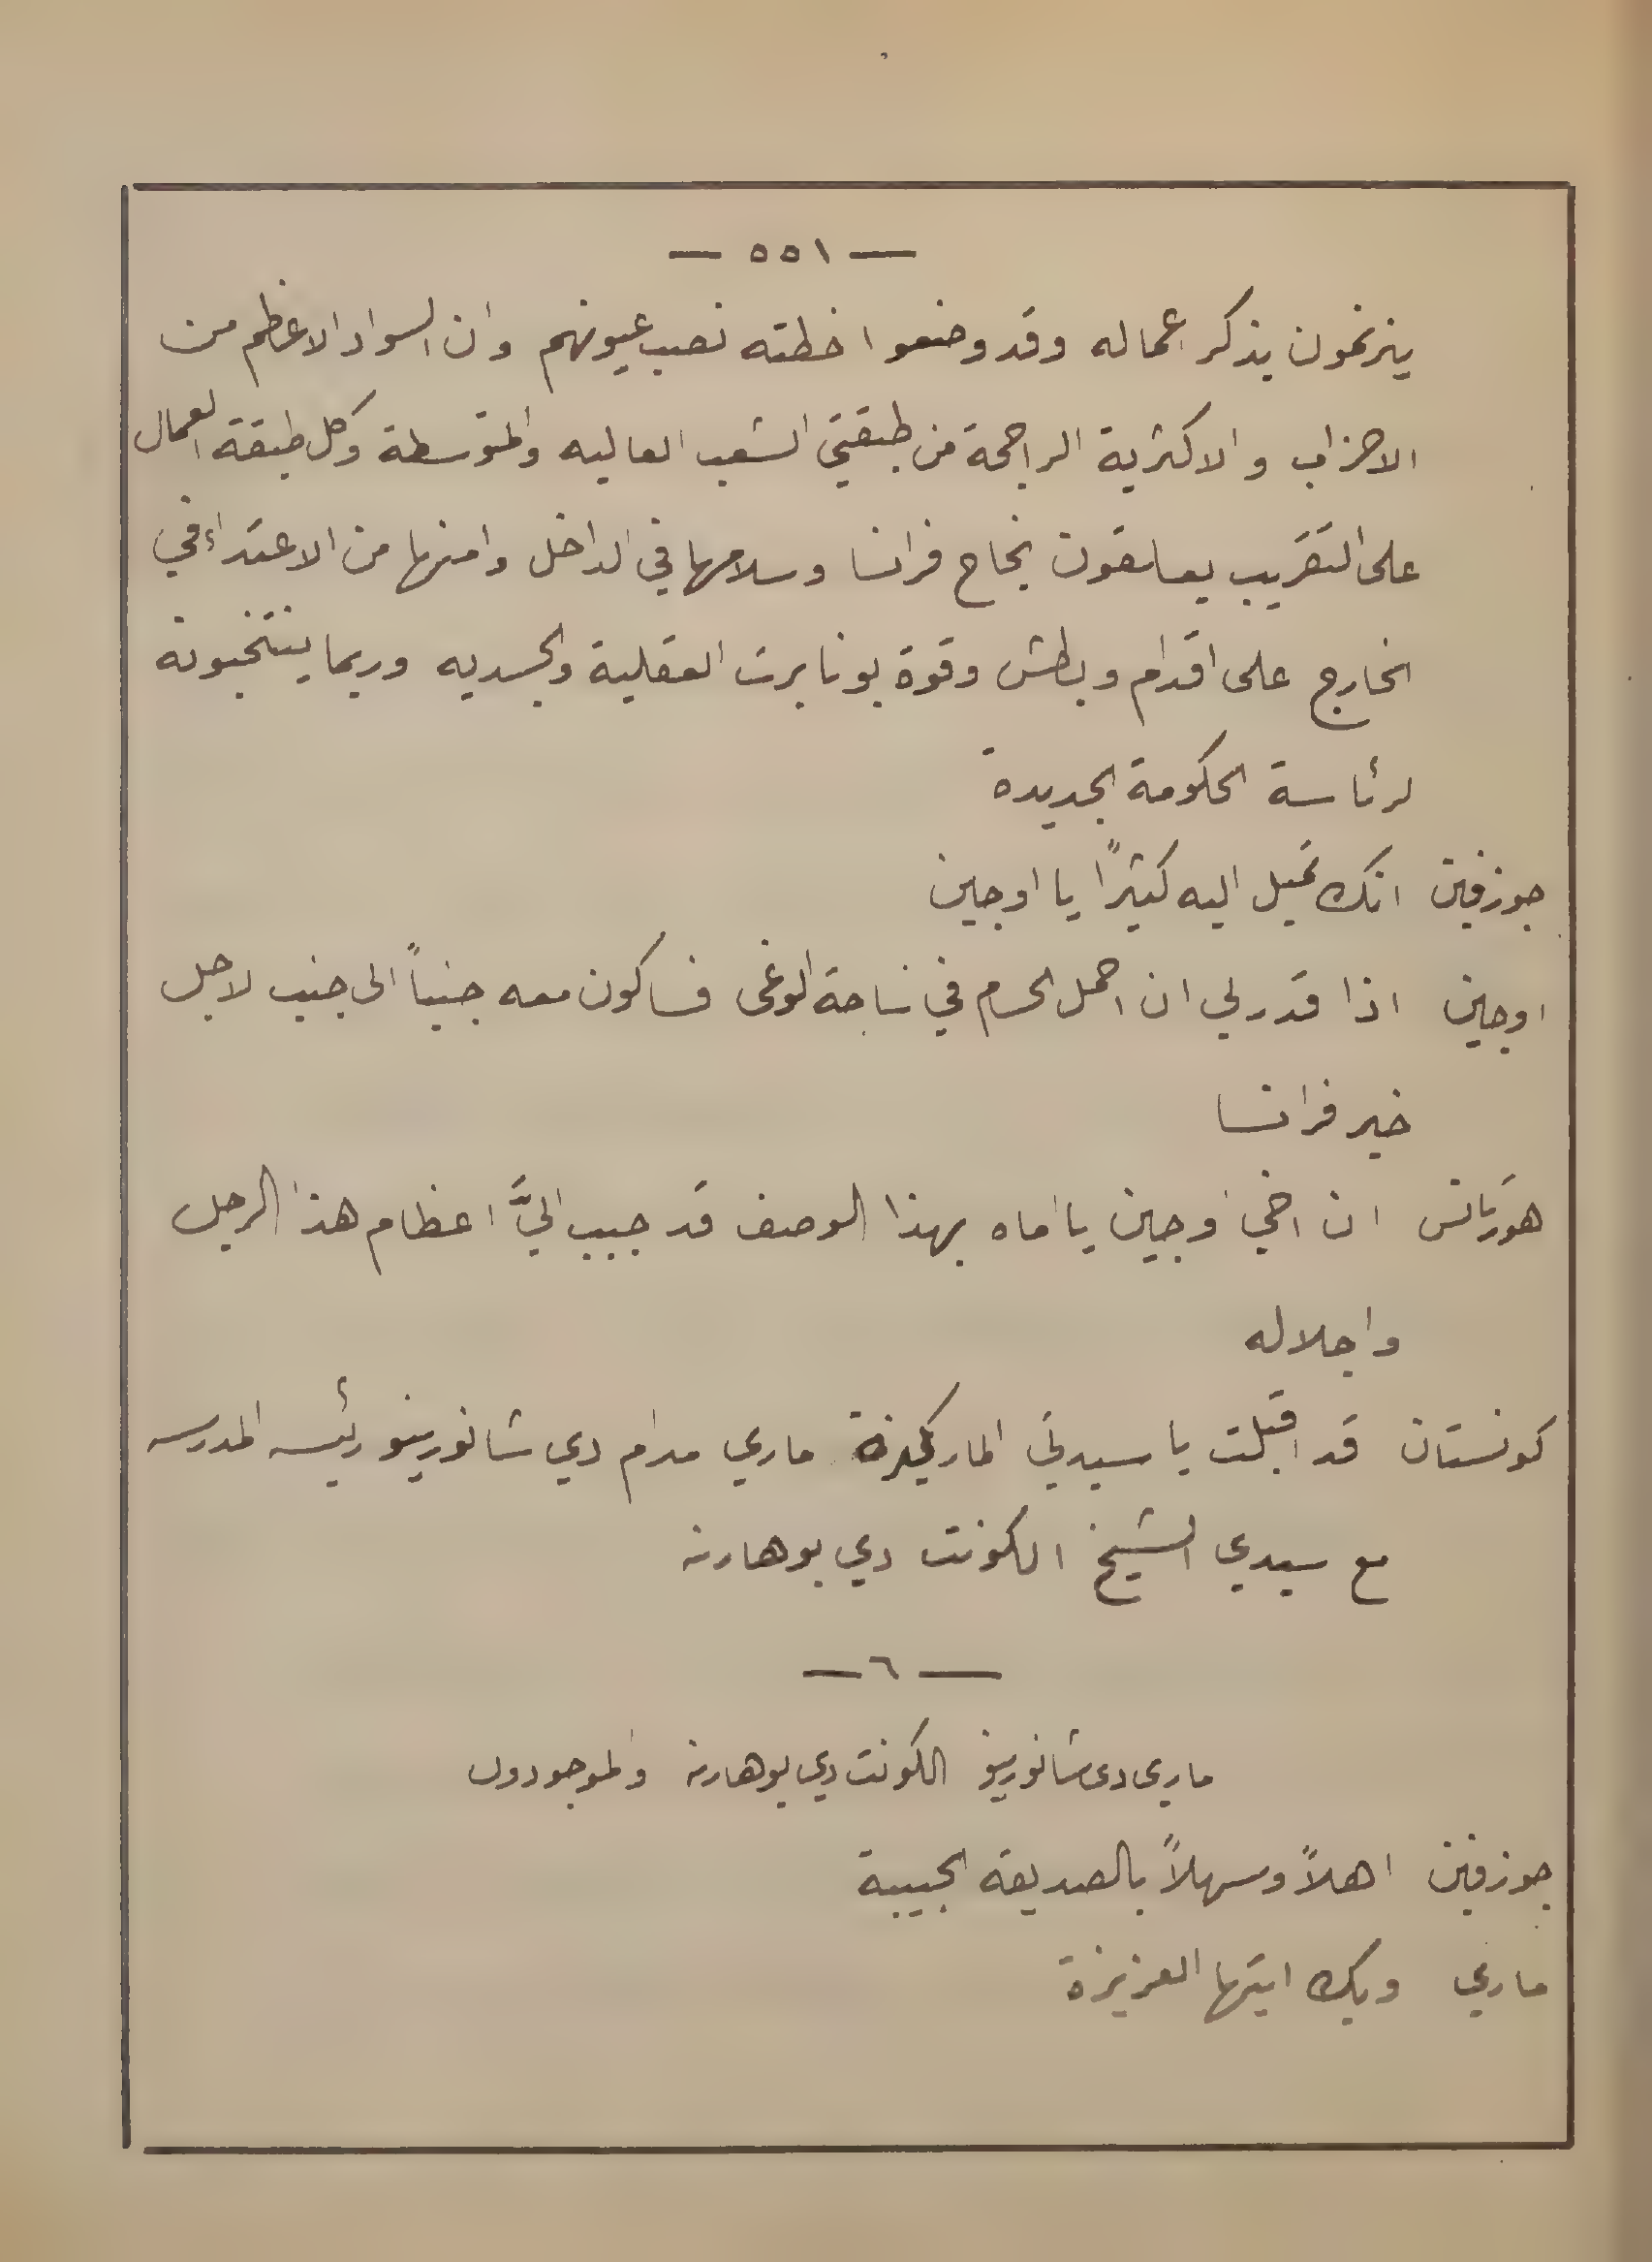 — ٥٥١ —
يترنمون بذكر اعماله وقد وضعوا خطته نصب عيونهم وان السواد الاعظم من
الاحزاب والاكثرية الراجحة من طبقتي الشعب العاليه والمتوسطة وكل طبقة العمال
على التقريب يعلقون نجاح فرانسا وسلامها في الداخل وامنها من الاعتداء في
الخارج على اقدام وبطش وقوة بونابرت العقلية والجسديه وربما ينتخبونه
لرئاسة الحكومة الجديدة
جوزفين انك تميل اليه كثيرًا يا اوجين
اوجين اذا قدر لي ان احمل الحسام في ساحة الوغى فساكون معه جنباً الى جنب لاجل
خير فرانسا
هورتانس ان اخي اوجين يا اماه بهذا الوصف قد حبب اليَّ اعظام هذا الرجل
واجلاله
كونستان قد اقبلت يا سيدتي الماركيزة ماري مدام دي شانورينو رئيسه المدرسه
مع سيدي الشيخ الكونت دي بوهارنه
— ٦ —
ماري دى شانورينو الكونت دي بوهارنه والموجودون
جوزفين اهلاً وسهلاً بالصديقة الحبيبة
ماري وبك ايتها العزيزة